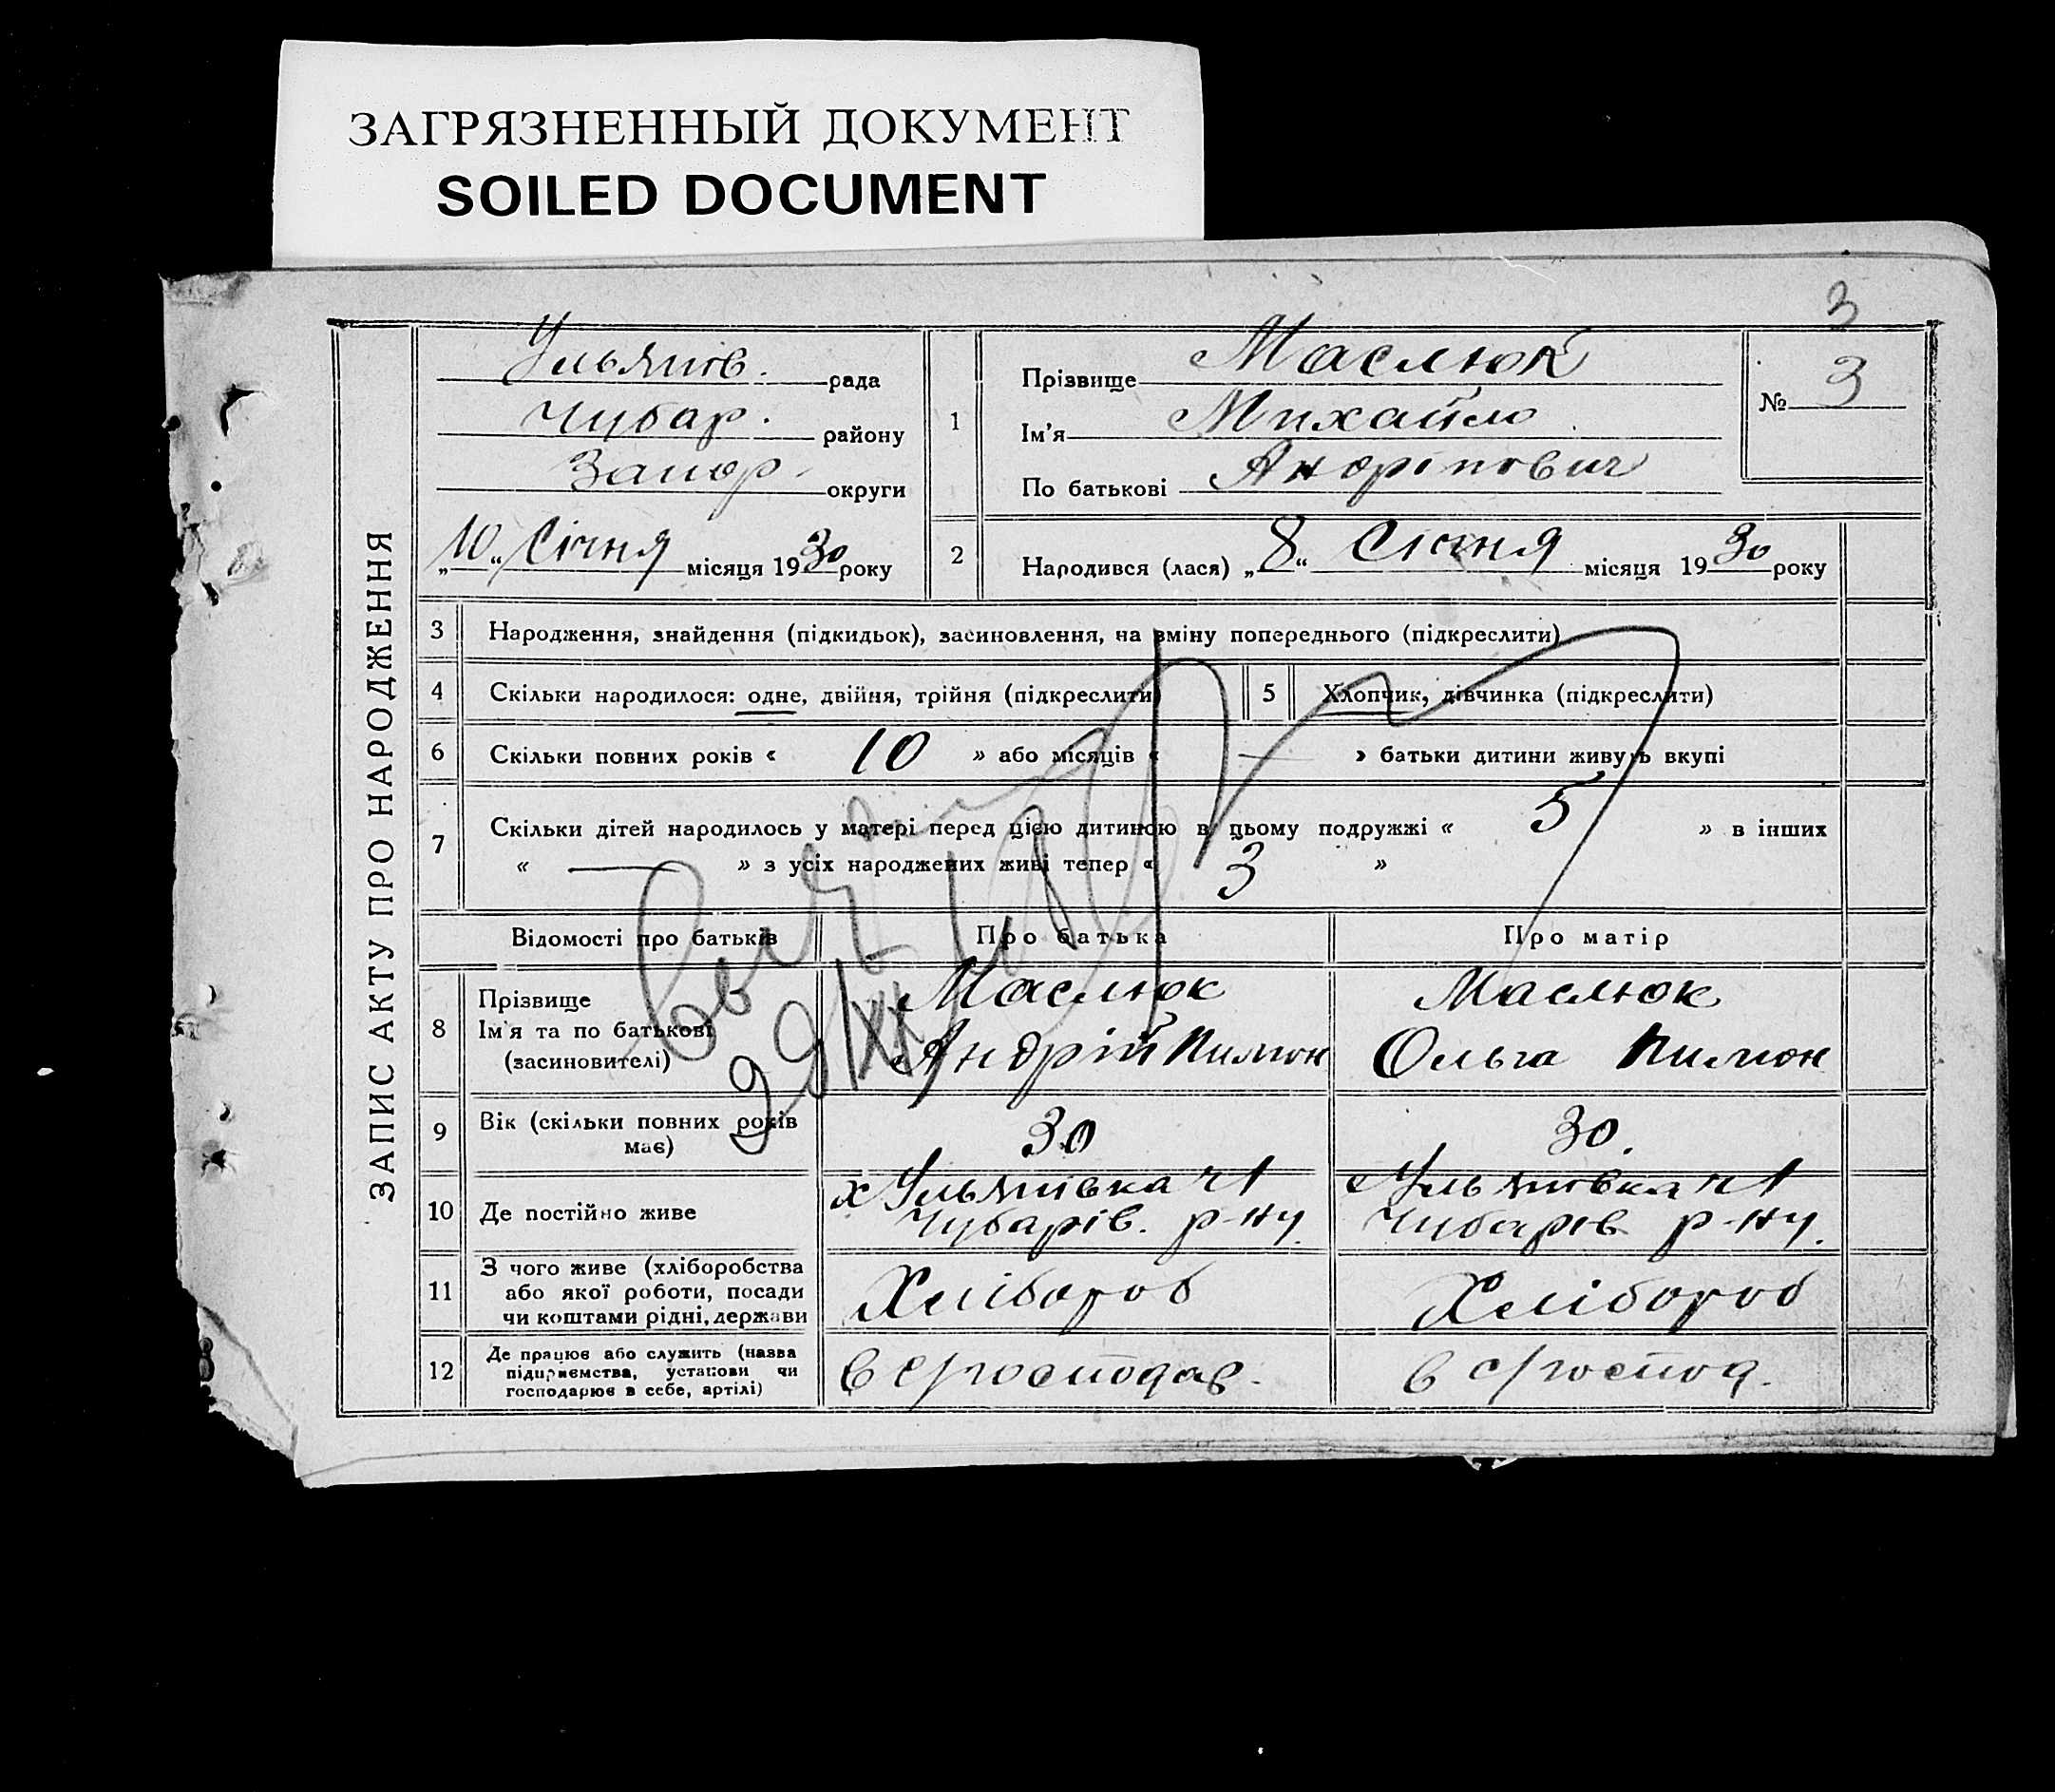 ЗАГРЯЗНЕННЫЙ ДОКУМЕНТ
SOILED DOCUMENT
3
ЗАПИС АКТУ ПРО НАРОДЖЕННЯ
Ульянів. рада
Чубар. району
Запор. округи
„10“ Січня місяця 1930 року
1
Прізвище Маслюк
Ім'я Михайло
По батькові Андрійович
№ 3
2 Народився (лася) „8“ Січня місяця 1930 року
3 Народження, знайдення (підкидьок), засиновлення, на зміну попереднього (підкреслити)
4 Скільки народилося: одне, двійня, трійня (підкреслити) 5 Хлопчик, дівчинка (підкреслити)
6 Скільки повних років « 10 » або місяців « — » батьки дитини живуть вкупі
7 Скільки дітей народилось у матері перед цією дитиною в цьому подружжі « 5 » в інших
« — » з усіх народжених живі тепер « 3 »
Відомості про батьків Про батька Про матір
8 Прізвище
Ім'я та по батькові
(засиновителі)
Маслюк
Андрій Пилип
Маслюк
Ольга
29/XI
9 Вік (скільки повних років
має)
30
30.
10 Де постійно живе
х Ульянівка ч 1
Чубарів. р-ну.
Ульянівка ч 1
Чубарів р-ну.
11 З чого живе (хліборобства
або якої роботи, посади
чи коштами рідні, держави
Хлібороб
Хлібороб
12 Де працює або служить (назва
підприємства, установи чи
господарює в себе, артілі)
в с/господар.
в с/господ.